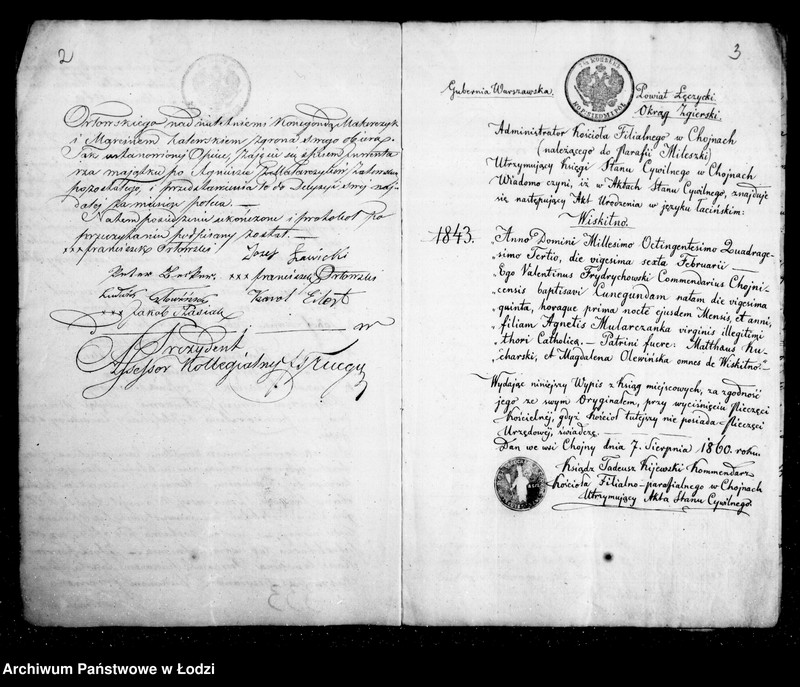 2
Orłowskiego nad nieletniemi Konegondą Makarczyk
i Marcinem Zaterskim zgrona swego obiera.
Tak ustanowiony Opiec, zajmie się spisem inwenta
rza majątku po Agnieszce
pozostałego, i przedstawienia to do decyzji swej naj-
dalej za miesiąc poleca. —
Na tem posiedzenie ukończone i protokół po
przeczytaniu podpisany został. —
xxx franciszek Orłowski
Józef Sawicki
Peter Berker. xxx franciszek Orłowski
Ludwik Karol Eilert
xxx Jakob Ptasiak
Prezydent
Assessor Kollegialny
3
Gubernia Warszawska.
Powiat Łęczycki
Okrąg Zgierski.
Administrator Kościoła Filialnego w Chojnach
(należącego do Parafii Mileszki)
Utrzymujący Księgi Stanu Cywilnego w Chojnach
Wiadomo czyni, iż w Aktach Stanu Cywilnego, znajduje
się następujący Akt Urodzenia w języku łacińskim:
Wiskitno.
1843. Anno Domini Millesimo Octingentesimo Quadrage-
„simo Tertio, die vigesima sexta Februarii
„Ego Valentinus Frydrychowski Commendarius Chojni-
„censis baptisavi Cunegundam natam die vigesima
„quinta, horaque prima nocte ejusdem Mensis, et anni,
„filiam Agnetis Mularczanka virginis illegitimi
„thori Catholica. — Patrini fuere: Matthæus Ku-
„charski, et Magdalena Olewińska omnes de Wiskitno."
Wydając niniejszy Wypis z Ksiąg miejscowych, za zgodność
jego ze swym Oryginałem, przy wyciśnięciu Pieczęci
Kościelnej, gdyż Kościół tutejszy nie posiada Pieczęci
Urzędowej, świadczę.
Dan we wsi Chojny dnia 7. Sierpnia 1860. roku.
Ksiądz Tadeusz Kijewski Kommendarz
Kościoła Filialno-parafialnego w Chojnach
Utrzymujący Akta Stanu Cywilnego.
Archiwum Państwowe w Łodzi